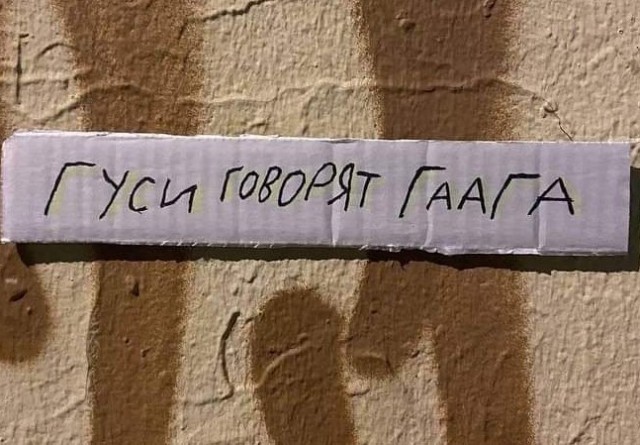 ГУСИ ГОВОРЯТ ГААГА